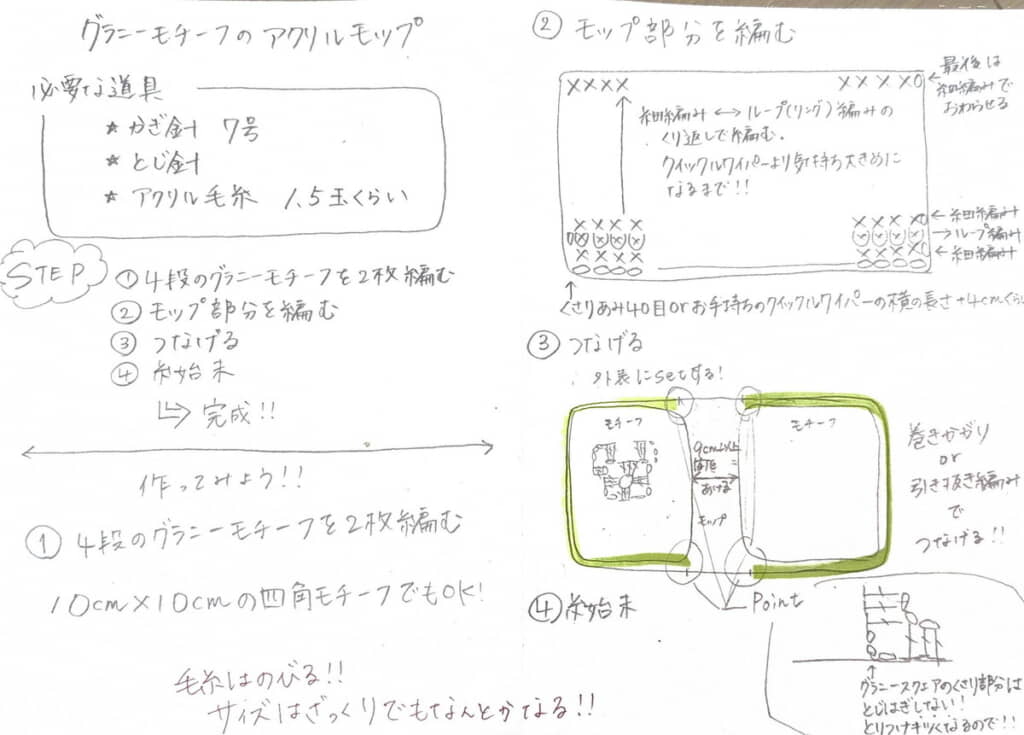 グラニーモチーフのアクリルモップ
必要な道具
★ かぎ針 7号
★ とじ針
★ アクリル毛糸 1.5玉くらい
STEP
① 4段のグラニーモチーフを2枚編む
② モップ部分を編む
③ つなげる
④ 糸始末
完成!!
作ってみよう!!
① 4段のグラニーモチーフを2枚編む
10cm×10cmの四角モチーフでもOK!
毛糸はのびる!!
サイズはざっくりでもなんとかなる!!
② モップ部分を編む
××××
××××0
最後は
細編みで
おわらせる
細編み ↔ ループ(リング)編みの
くり返しで編む.
クイックルワイパーより気持ち大きめに
なるまで!!
← 細編み
→ ループ編み
← 細編み
くさりあみ40目orお手持ちのクイックルワイパーの横の長さ+4cmくらい
③ つなげる
外表にsetする!
モチーフ
9cm以上
あける
モップ
モチーフ
巻きかがり
or
引き抜き編み
で
つなげる!!
Point
④ 糸始末
グラニースクエアのくさり部分は
とじはぎしない!
とりつけキツくなるので!!